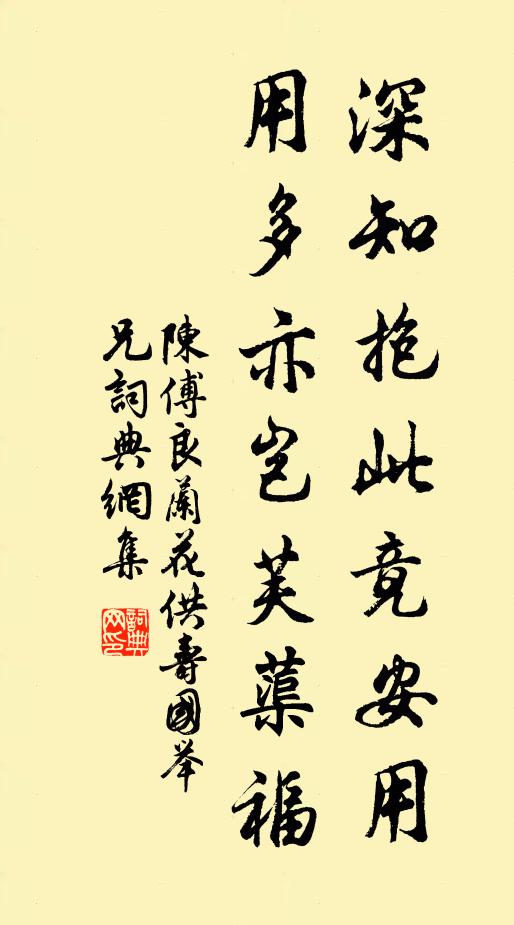 深知抱此竟安用
用多亦岂芙蕖福
陳傅良蘭花供壽國举
兄詞典網集
詞典
网印